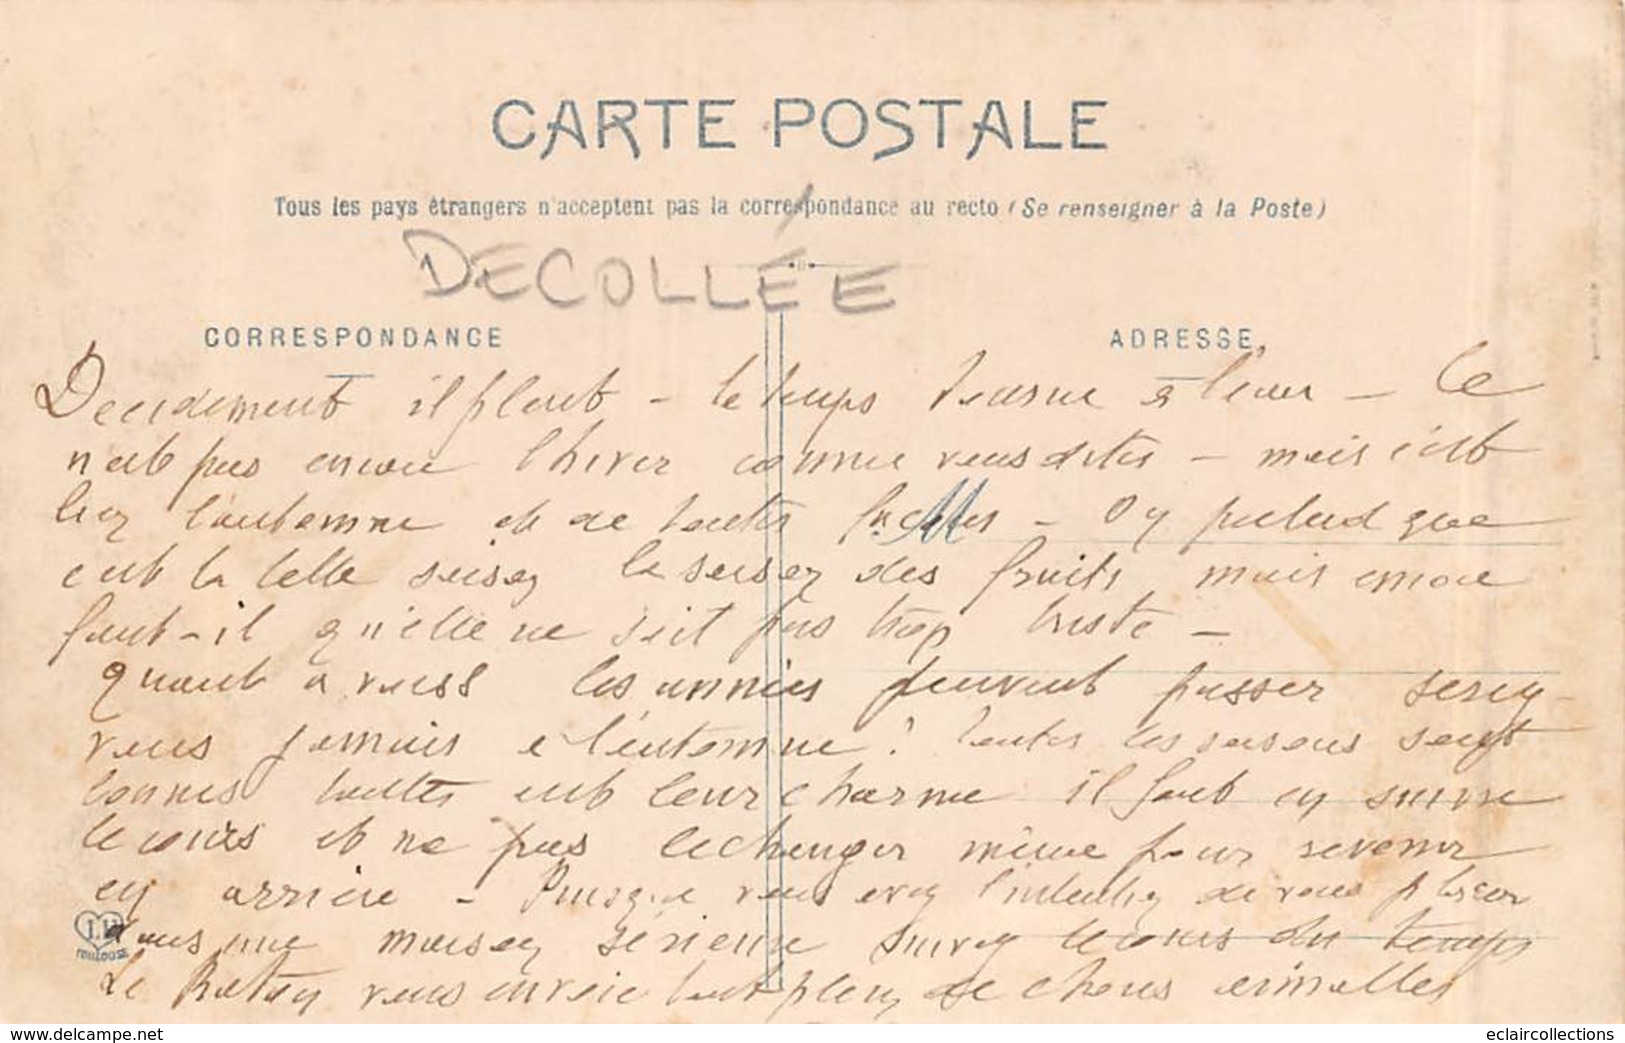 CARTE POSTALE
Tous les pays étrangers n'acceptent pas la correspondance au recto (Se renseigner à la Poste)
DECOLLÉE
CORRESPONDANCE
ADRESSE
Decidement il pleut - le temps tourne à l'eau - Ce
n'est pas encore l'hiver comme vous dites - mais c'est
bien l'automne et de toutes - On pretend que
c'est la belle saison la saison des fruits mais encore
faut-il qu'elle ne soit pas trop triste -
quant a vous les années peuvent passer serez-
vous jamais a l'automne ? toutes les saisons sont
bonnes toutes ont leur charme il faut en suivre
le cours et ne pas le changer même pour revenir
en arrière - Puisque vous avez l'intention de vous placer
dans une maison sérieuse suivez le cours du temps
Le vous envoie tout plein de choses aimables
Toulouse
delcampe.net
eclaircollections